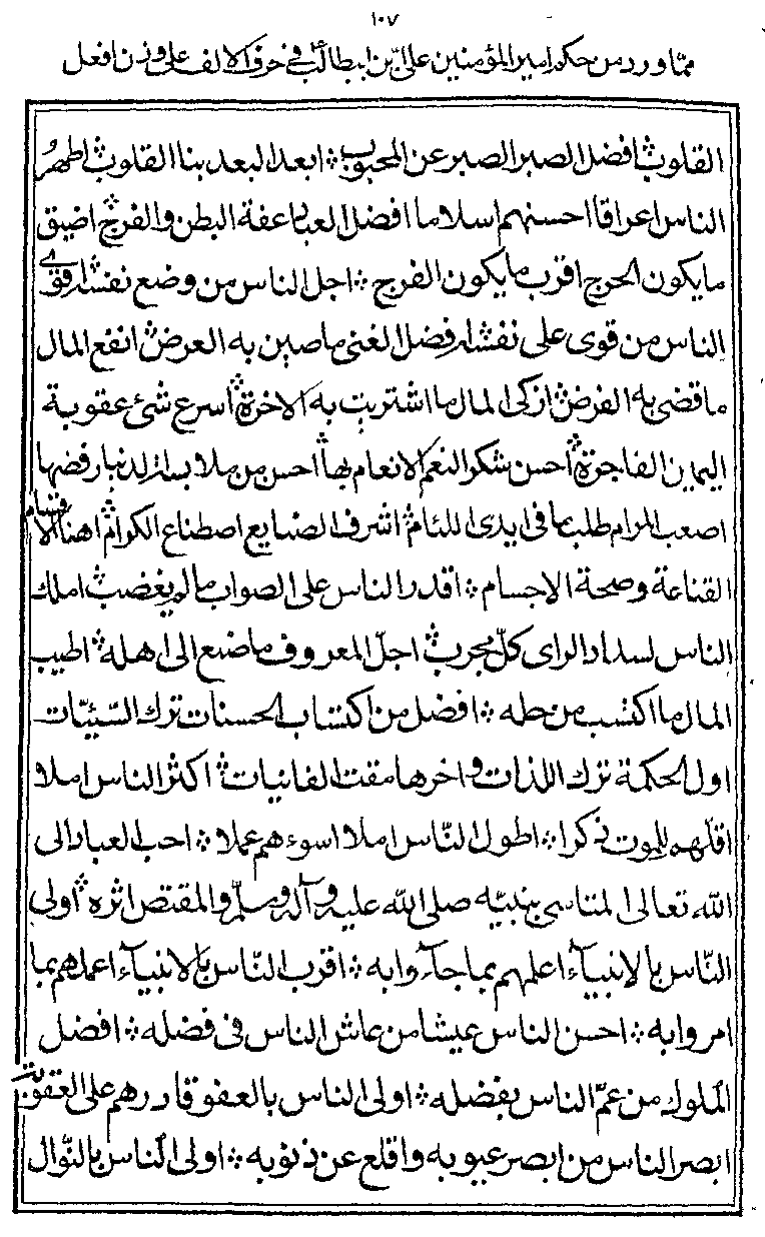 ١٠٧
مما ورد من حكم امير المؤمنين علي بن ابيطالب في حرف الالف على وزن افعل
القلوب ۞ افضل الصبر الصبر عن المحبوب ۞ ابعد البعد بنا القلوب ۞ اطهر
الناس اعراقا احسنهم اسلاما افضل العبادة عفة البطن والفرج ۞ اضيق
ما يكون الحرج اقرب ما يكون الفرج ۞ اجل الناس من وضع نفسه ۞ اقوى
الناس من قوى على نفسه ۞ افضل الغنى ما صين به العرض ۞ انفع المال
ما قضى به الفرض ۞ ازكى المال ما اشتريت به الاخرة ۞ اسرع شئ عقوبة
اليمين الفاجرة ۞ احسن شكر النعم الانعام بها ۞ احسن من ملابسة الدنيا رفضها
اصعب المرام طلب ما في ايدى اللئام ۞ اشرف الصنايع اصطناع الكرام ۞ اهنأ الاقسام
القناعة وصحة الاجسام ۞ اقدر الناس على الصواب مالم يغضب ۞ املك
الناس لسداد الراى كلّ مجرب ۞ اجلّ المعروف ما صنع الى اهله ۞ اطيب
المال ما اكتسب من حله ۞ افضل من اكتساب الحسنات ترك السّيئات
اول الحكمة ترك اللذات واخرها مقت الفانيات ۞ اكثر الناس املا
اقلّهم للموت ذكرا ۞ اطول النّاس املا اسوءهم عملا ۞ احب العباد الى
الله تعالى المتاسى بنبيّه صلى الله عليه وآله وسلّم والمقتص اثره ۞ اولى
النّاس بالانبيآء اعلمهم بما جآءوا به ۞ اقرب النّاس بالانبيآء اعملهم بما
امروا به ۞ احسن الناس عيشا من عاش الناس فى فضله ۞ افضل
الملوك من عمّ الناس بفضله ۞ اولى الناس بالعفو قادرهم على العقوبة
ابصر الناس من ابصر عيوبه واقلع عن ذنوبه ۞ اولى الناس بالنّوال